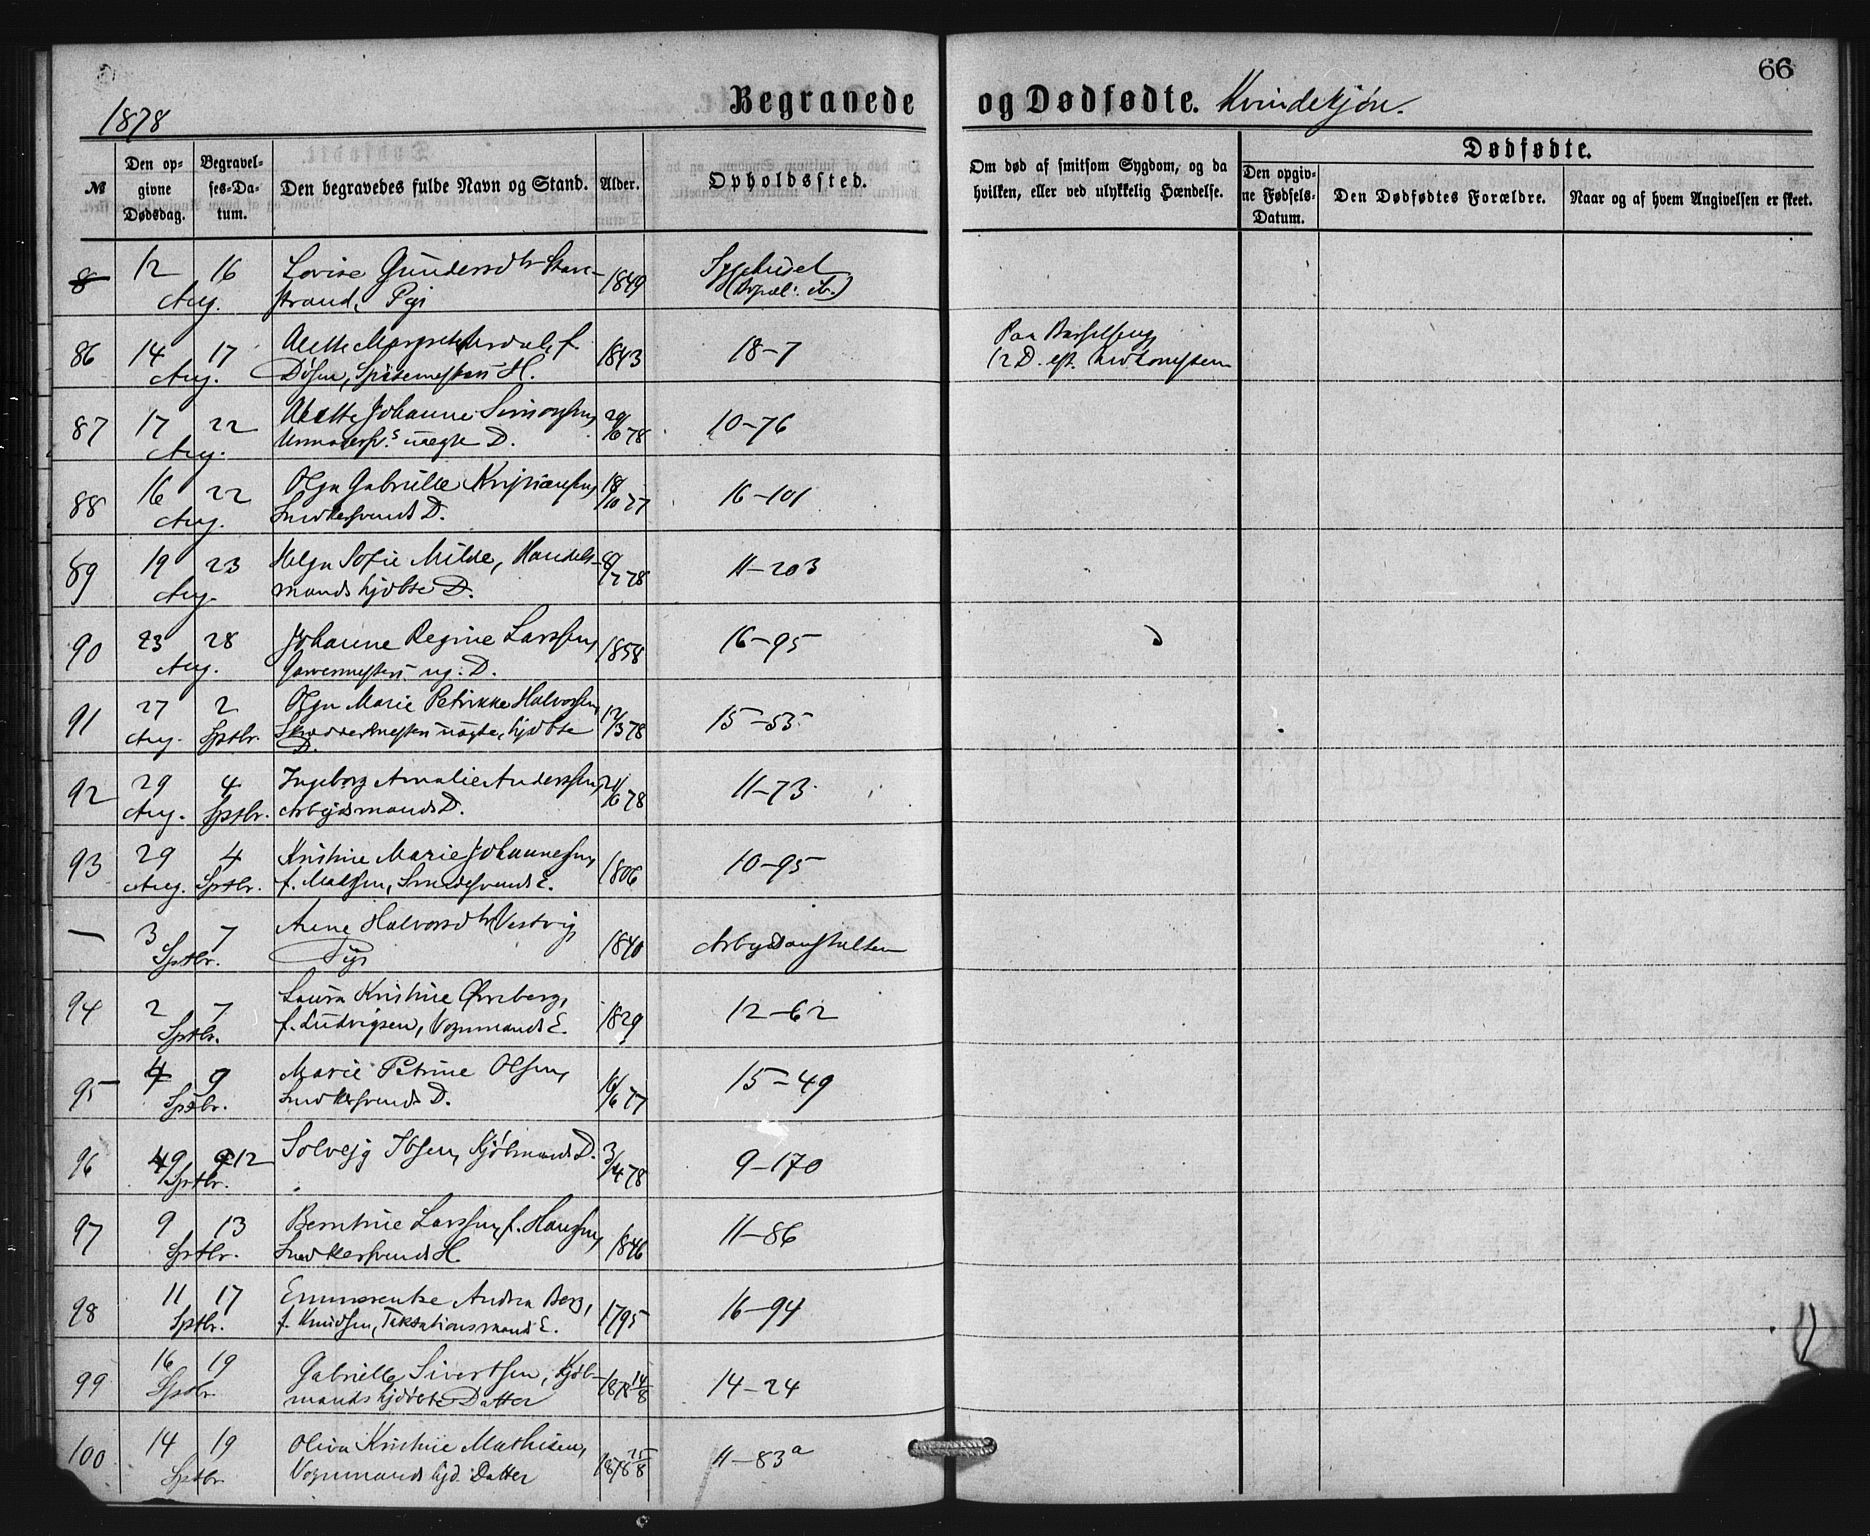 66
1878
Begravede og Dødfødte. Kvindekjøn.
№
Den opgivne Dødsdag.
Begravelses-Datum.
Den begravedes fulde Navn og Stand.
Alder.
Opholdssted.
Om død af smitsom Sygdom, og da hvilken, eller ved ulykkelig Hændelse.
Dødfødte.
Den opgivne Fødsels-Datum.
Den Dødfødtes Forældre.
Naar og af hvem Angivelsen er skeet.
8 12 16 Lovise Gundersdtr 1849
Aug. strand, Pige
86 14 17 1843 18–7
Aug. H. 12 D. eft.
87 17 22 Johanne Simonsen, 10–76
Aug. uægte D. 78
88 16 22 Olga Gabrielle Kristiansen, 18/10 77 16–101
Aug. Snedkersvends D.
89 19 23 Helga Sofie Milde, Handels- 78 11–203
Aug. mands hjdbte D.
90 23 28 Johanne Regine Larssen, 1858 16–95
Aug. Garvermesters ug. D.
91 27 2 Olga Marie Petrikke Halvorsen, 12/3 78 15–55
Aug. Sptbr. Skræddermesters uægte, hjdbte
D.
92 29 4 Ingeborg Amalie Anderssen, 78 11–73
Aug. Sptbr. Arbeidsmands D.
93 29 4 Kristine Marie Johannesen, 1806 10–95
Aug. Sptbr. f. Madsen, E.
— 3 7 Anne Halvorsdtr Vestvig, 1840 Arbeidsanstalten
Sptbr. Pige
94 2 7 Laura Kristine 1829 12–62
Sptbr. f. Ludvigsen, Vognmands E.
95 4 9 Marie Petrine Olsen, 16/6 77 15–49
Sptbr. Snedkersvends D.
96 9 12 Solvejg Ibsen, Kjøbmands D. 3/4 78 9–170
Sptbr.
97 9 13 Berntine Larssen, f. Hanssen, 1846 11–86
Sptbr. Snedkersvends H.
98 11 17 Emmerentze Andrea Berg, 1795 16–94
Sptbr. f. Knudsen, Taksationsmands E.
99 16 19 Gabrielle Sivertsen, Kjøb- 1878 14/8 14–24
Sptbr. mands hjdøbte Datter
100 14 19 Oliva Kristine Mathisen, 1878 25/8 11–83a
Sptbr. Vognmands hjd. Datter